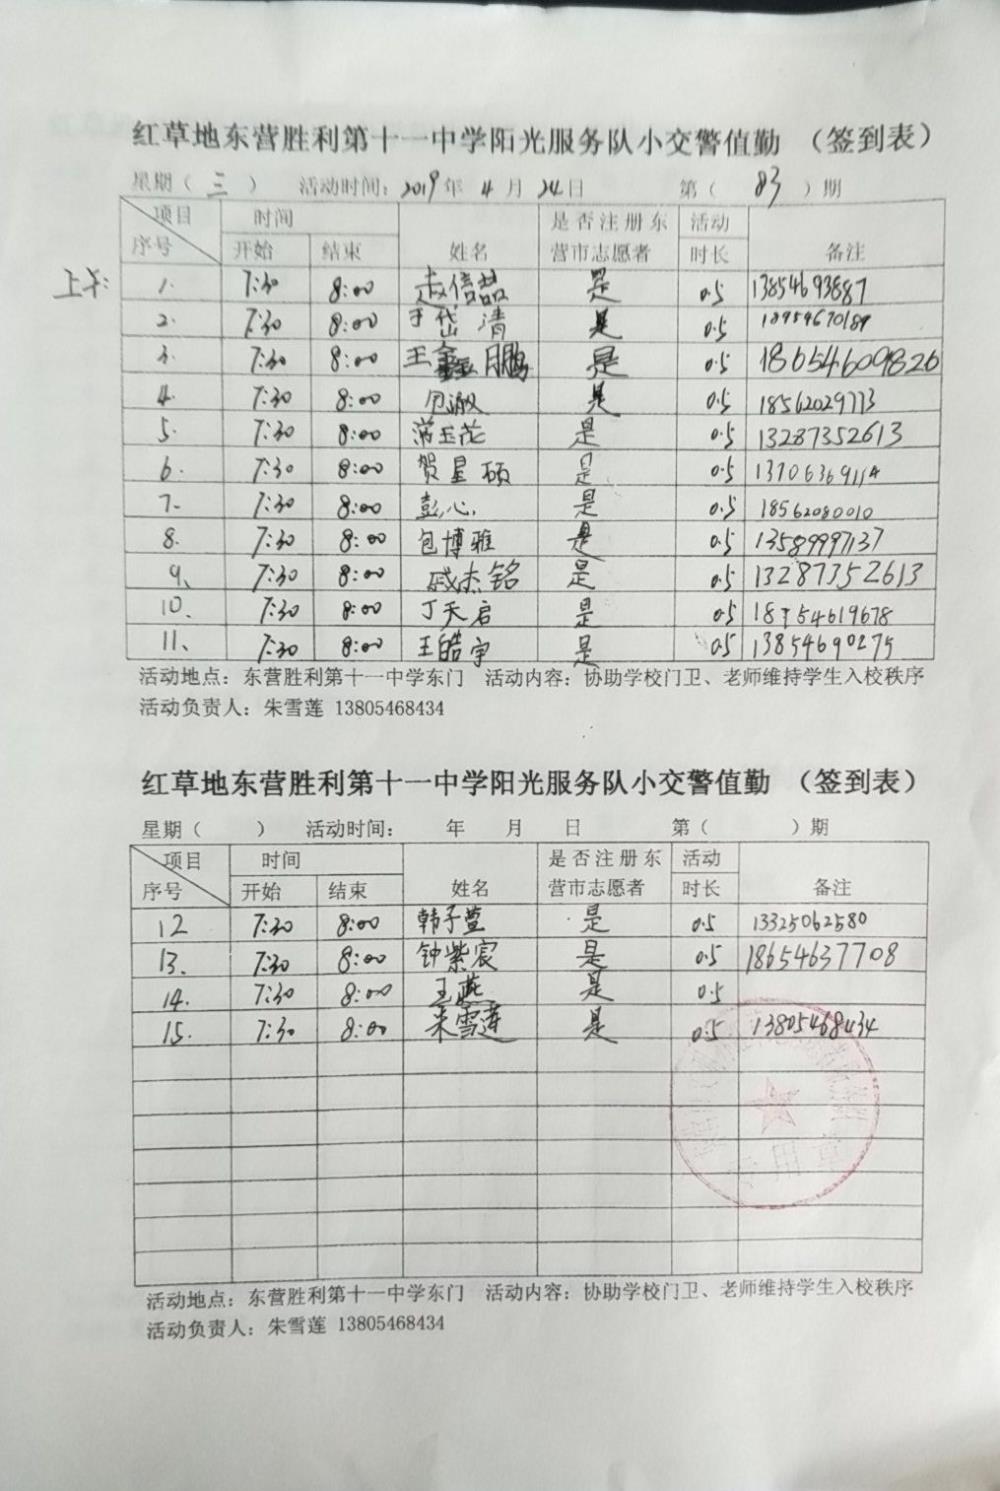 红草地东营胜利第十一中学阳光服务队小交警值勤 （签到表）
星期（ 三 ） 活动时间：2019年 4 月 24日 第（ 83 ）期
项目 时间 是否注册东 活动
序号 开始 结束 姓名 营市志愿者 时长 备注
上午：
1. 7:30 8:00 赵信喆 是 0.5 13854693887
2. 7:30 8:00 于岱清 是 0.5
3. 7:30 8:00 王鑫鹏 是 0.5 18654609826
4. 7:30 8:00 包淑 是 0.5 18562029713
5. 7:30 8:00 常玉花 是 0.5 13287352613
6. 7:30 8:00 贺星硕 是 0.5 13706369114
7. 7:30 8:00 彭心 是 0.5 18562080010
8. 7:30 8:00 包博雅 是 0.5 13589997137
9、 7:30 8:00 戚杰铭 是 0.5 13287352613
10、 7:30 8:00 丁天启 是 0.5
11、 7:30 8:00 王皓宇 是 0.5 13854690275
活动地点：东营胜利第十一中学东门 活动内容：协助学校门卫、老师维持学生入校秩序
活动负责人：朱雪莲 13805468434
红草地东营胜利第十一中学阳光服务队小交警值勤 （签到表）
星期（ ） 活动时间： 年 月 日 第（ ）期
项目 时间 是否注册东 活动
序号 开始 结束 姓名 营市志愿者 时长 备注
12 7:30 8:00 韩子萱 是 0.5 13325062580
13、 7:30 8:00 钟紫宸 是 0.5 18654637708
14. 7:30 8:00 王燕 是 0.5
15. 7:30 8:00 朱雪莲 是 0.5 13805468434
专用章
活动地点：东营胜利第十一中学东门 活动内容：协助学校门卫、老师维持学生入校秩序
活动负责人：朱雪莲 13805468434